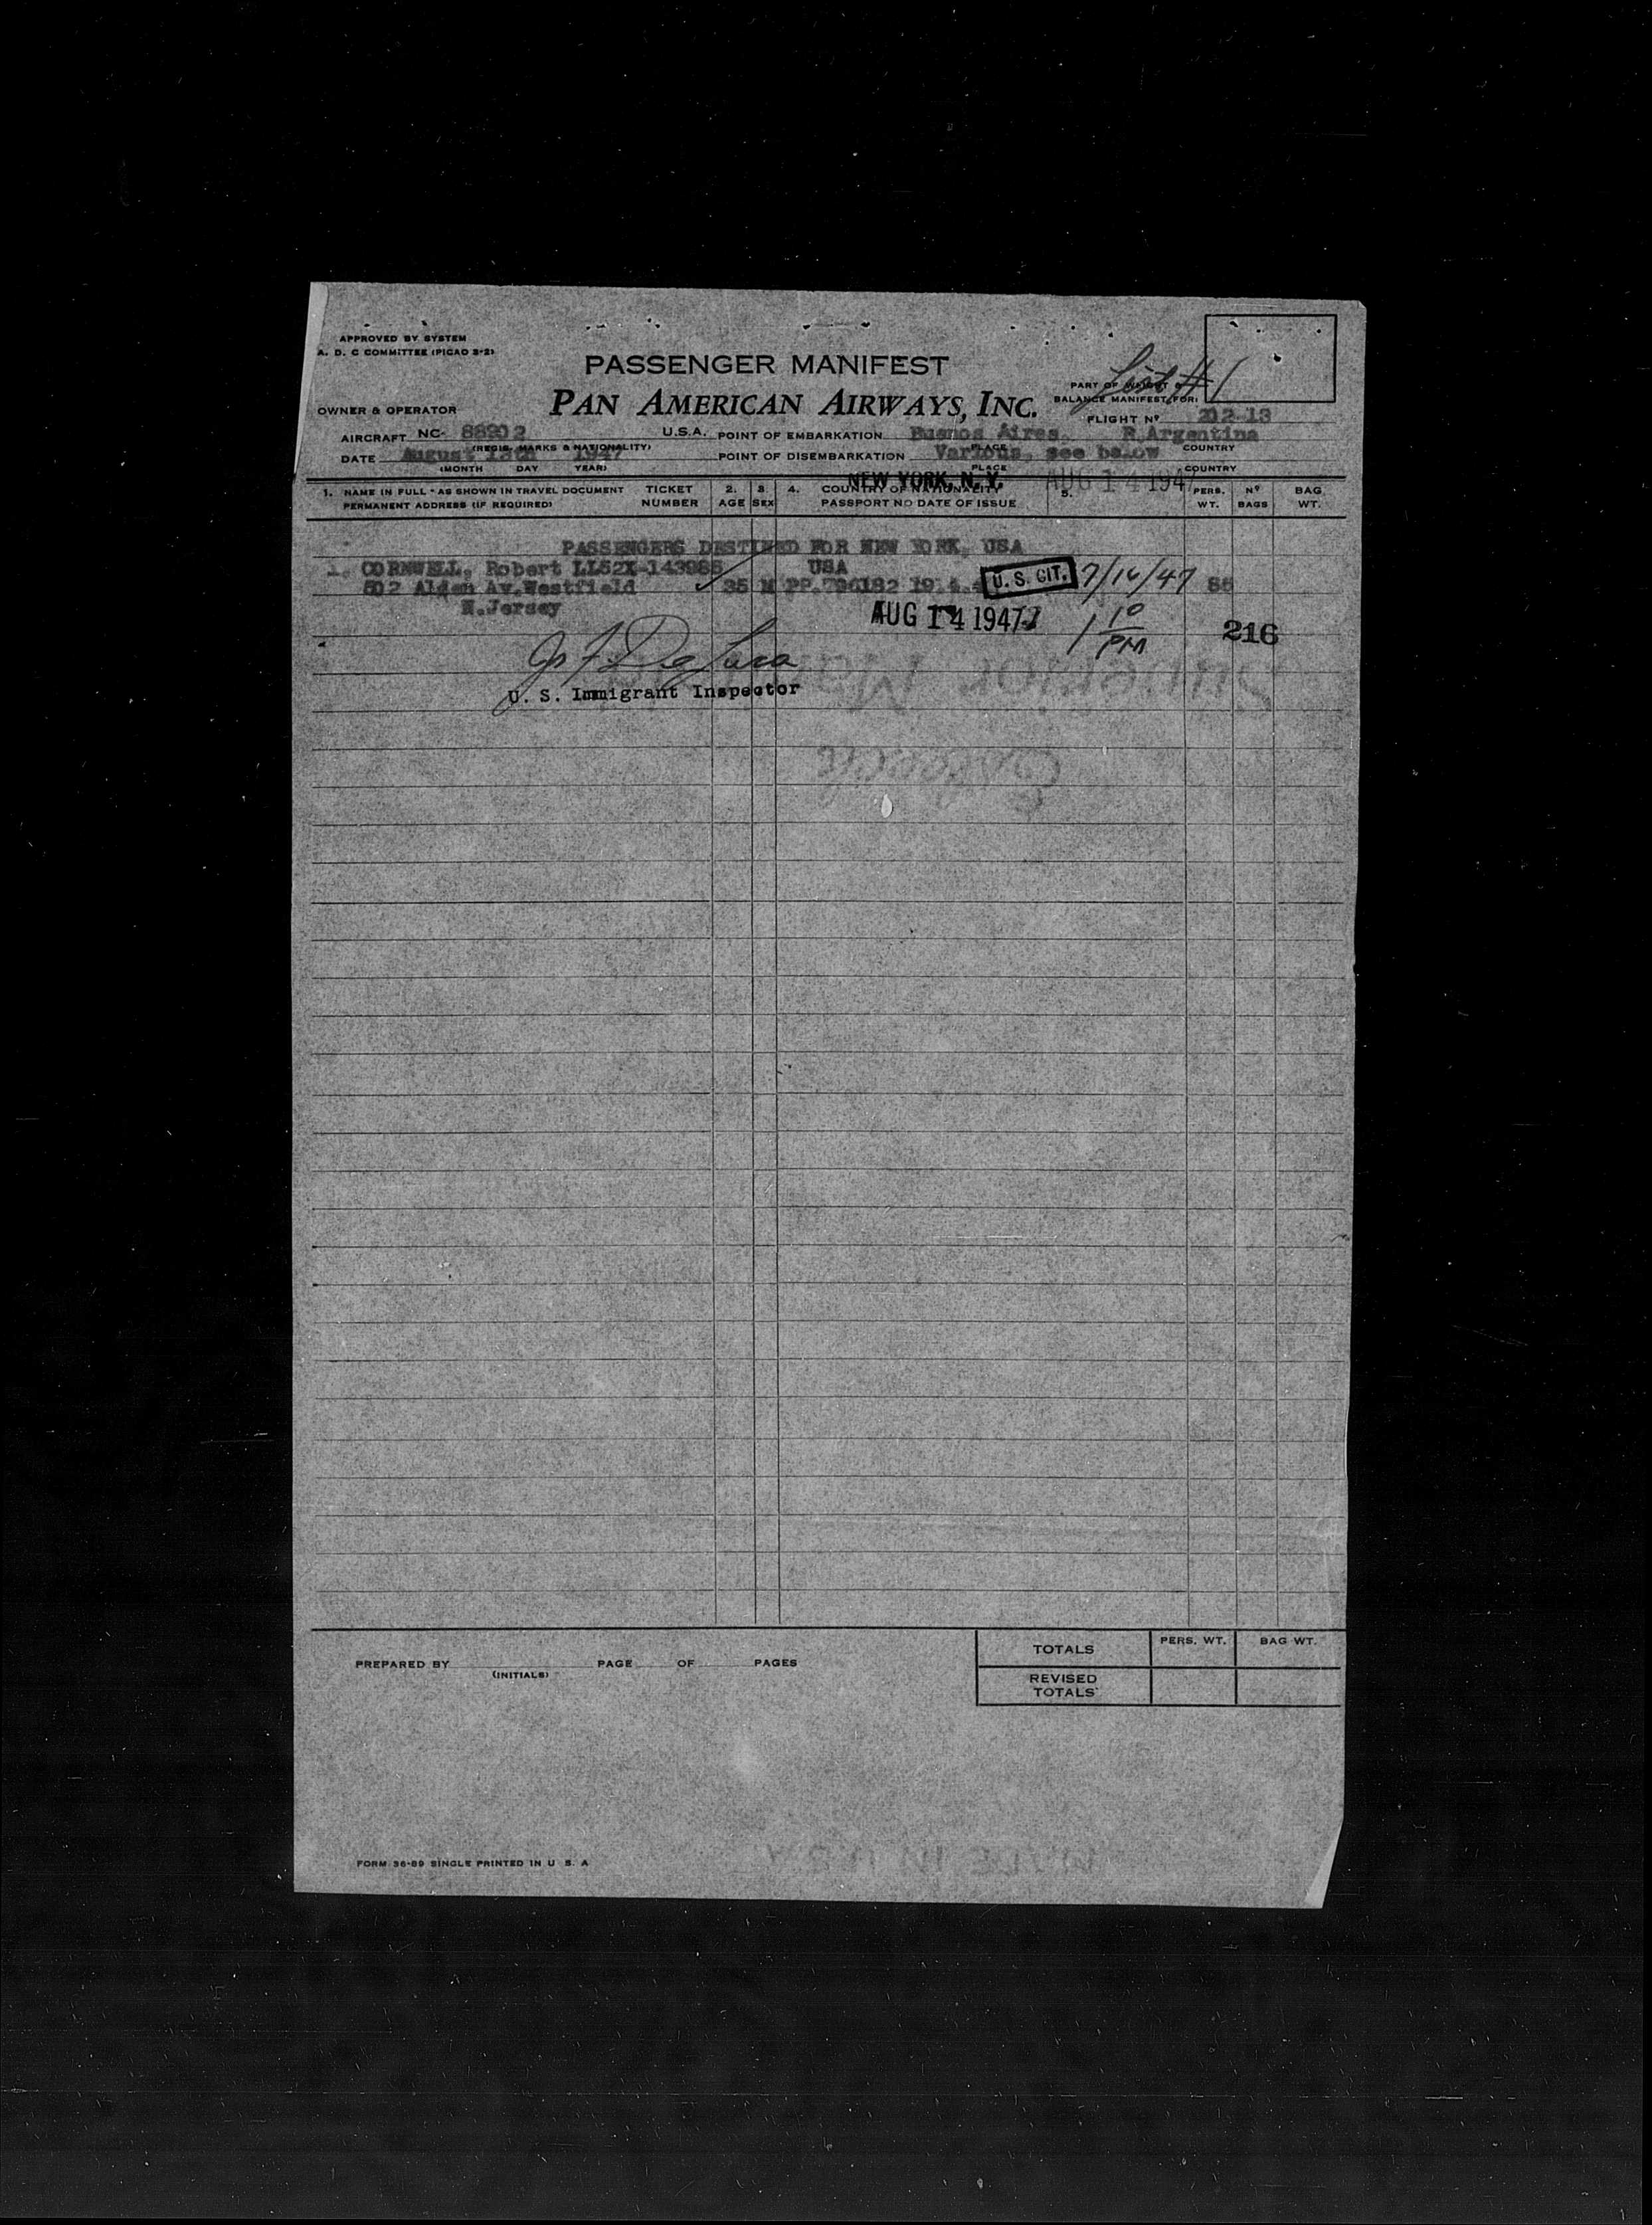 APPROVED BY SYSTEM
A. D. C COMMITTEE (PICAO 3-2)
PASSENGER MANIFEST
List # 1
PART OF WEIGHT &
BALANCE MANIFEST FOR:
OWNER & OPERATOR
PAN AMERICAN AIRWAYS, INC.
FLIGHT Nº 202-13
AIRCRAFT NC- 88902 U.S.A. POINT OF EMBARKATION Buenos Aires, R.Argentina
(REGIS. MARKS & NATIONALITY) PLACE COUNTRY
DATE August 1947 POINT OF DISEMBARKATION Various, see below
(MONTH DAY YEAR) PLACE COUNTRY
NEW YORK, N. Y. AUG 14 1947
1. NAME IN FULL - AS SHOWN IN TRAVEL DOCUMENT TICKET 2. 3. 4. COUNTRY OF NATIONALITY 5. PERS. Nº BAG
PERMANENT ADDRESS (IF REQUIRED) NUMBER AGE SEX PASSPORT NO DATE OF ISSUE WT. BAGS WT.
PASSENGERS DESTINED FOR NEW YORK, USA
1. CORNWELL, Robert LL52X-143985 USA
502 Alden Av.Westfield 35 M PP.796182 U. S. CIT. 7/16/47 86
N.Jersey
AUG 14 1947 1 10 PM 216
U. S. Immigrant Inspector
TOTALS PERS. WT. BAG WT.
PREPARED BY PAGE OF PAGES
(INITIALS)
REVISED
TOTALS
FORM 36-89 SINGLE PRINTED IN U. S. A